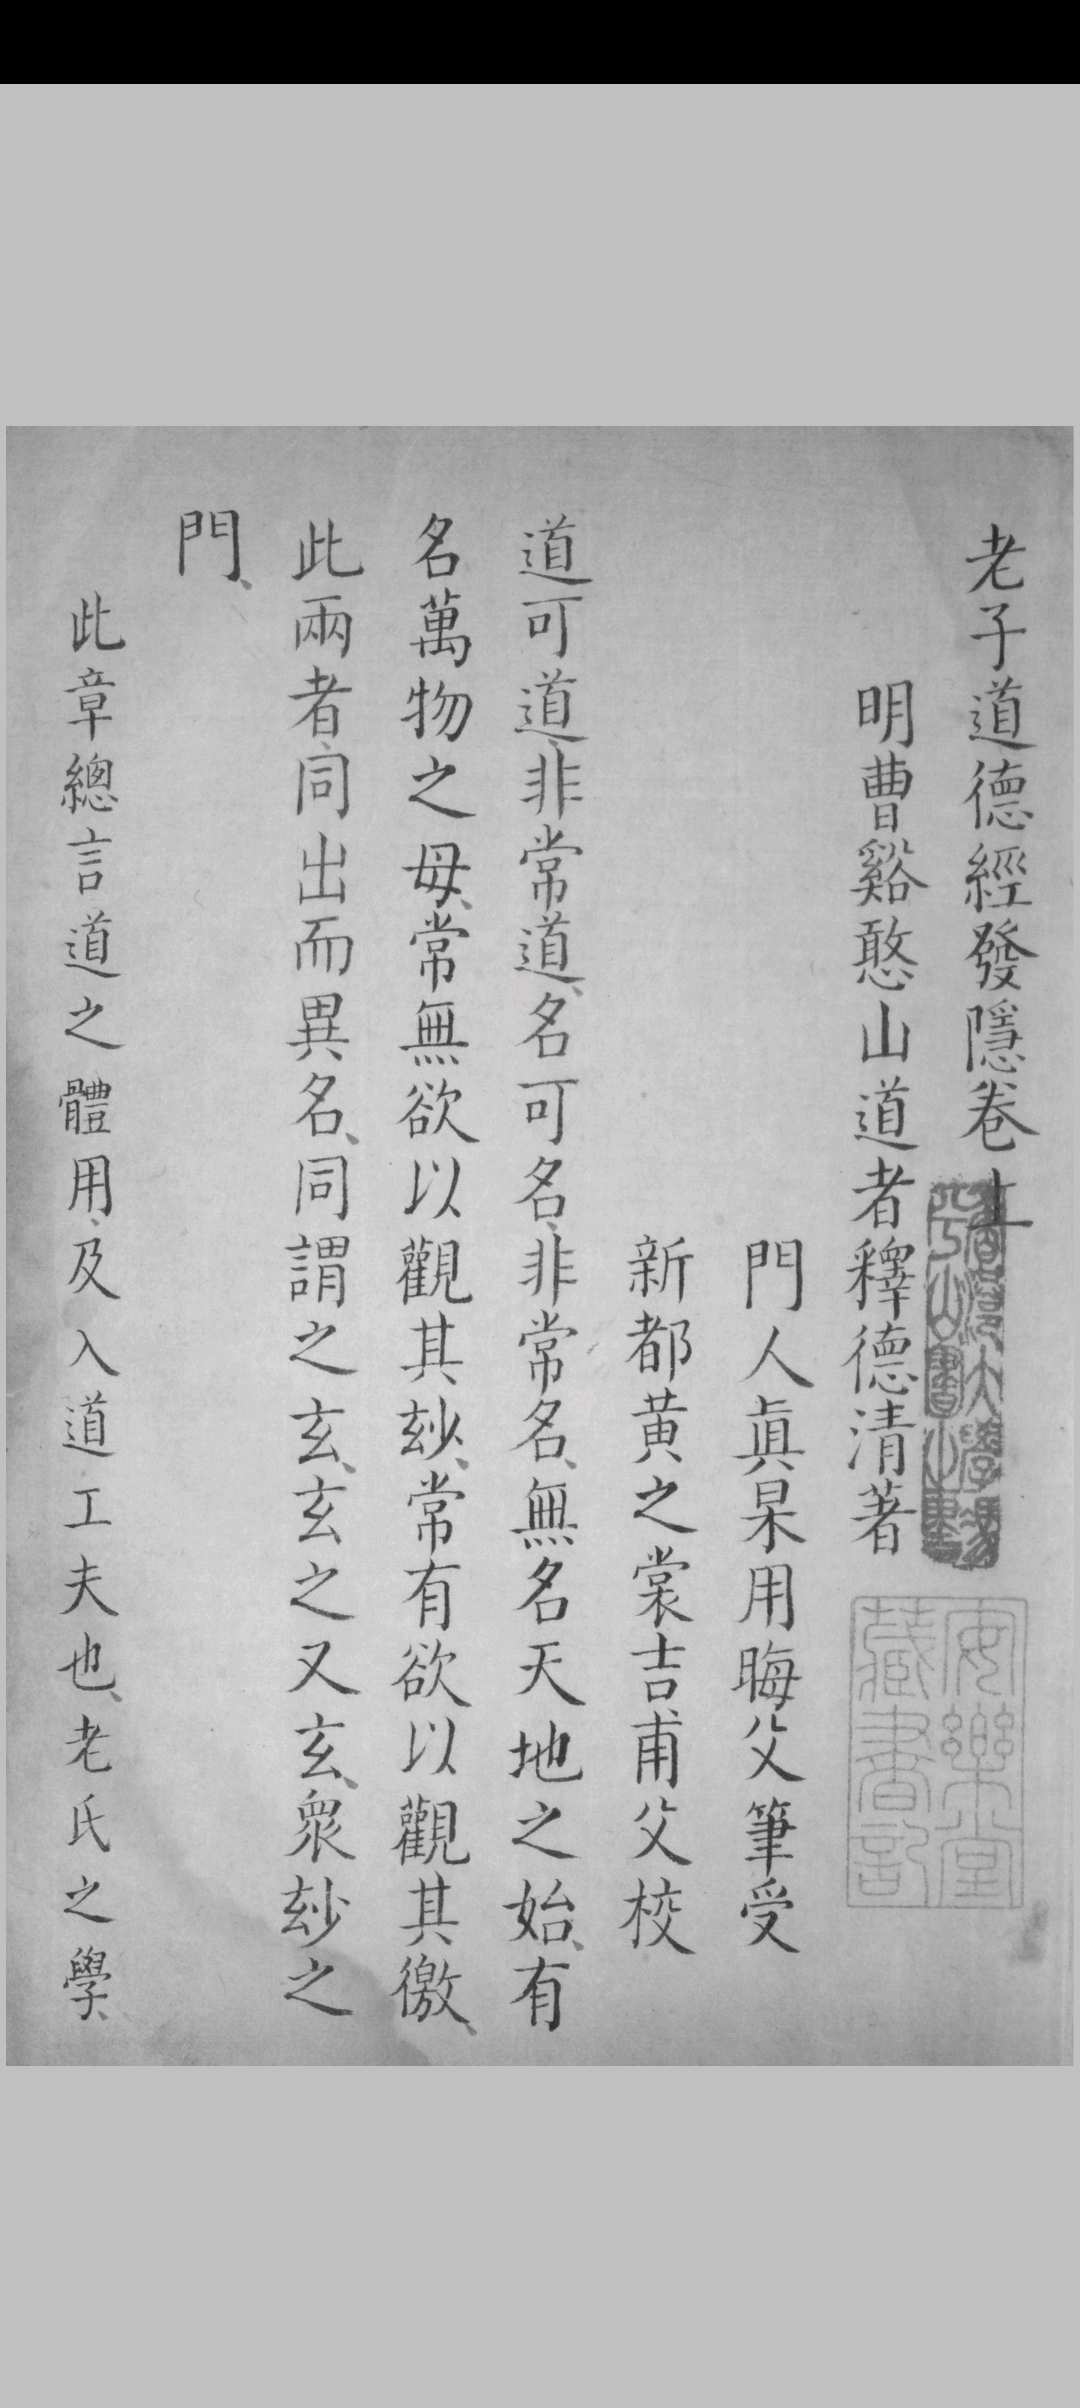 老子道德經發隱卷上
明曹谿憨山道者釋德清著
門人眞杲用晦父筆受
新都黄之裳吉甫父校
道可道、非常道、名可名、非常名、無名天地之始、有
名萬物之母、常無欲以觀其玅、常有欲以觀其徼、
此兩者、同出而異名、同謂之玄、玄之又玄、衆玅之
門、
此章總言道之體用、及入道工夫也、老氏之學、
安樂堂
藏書記